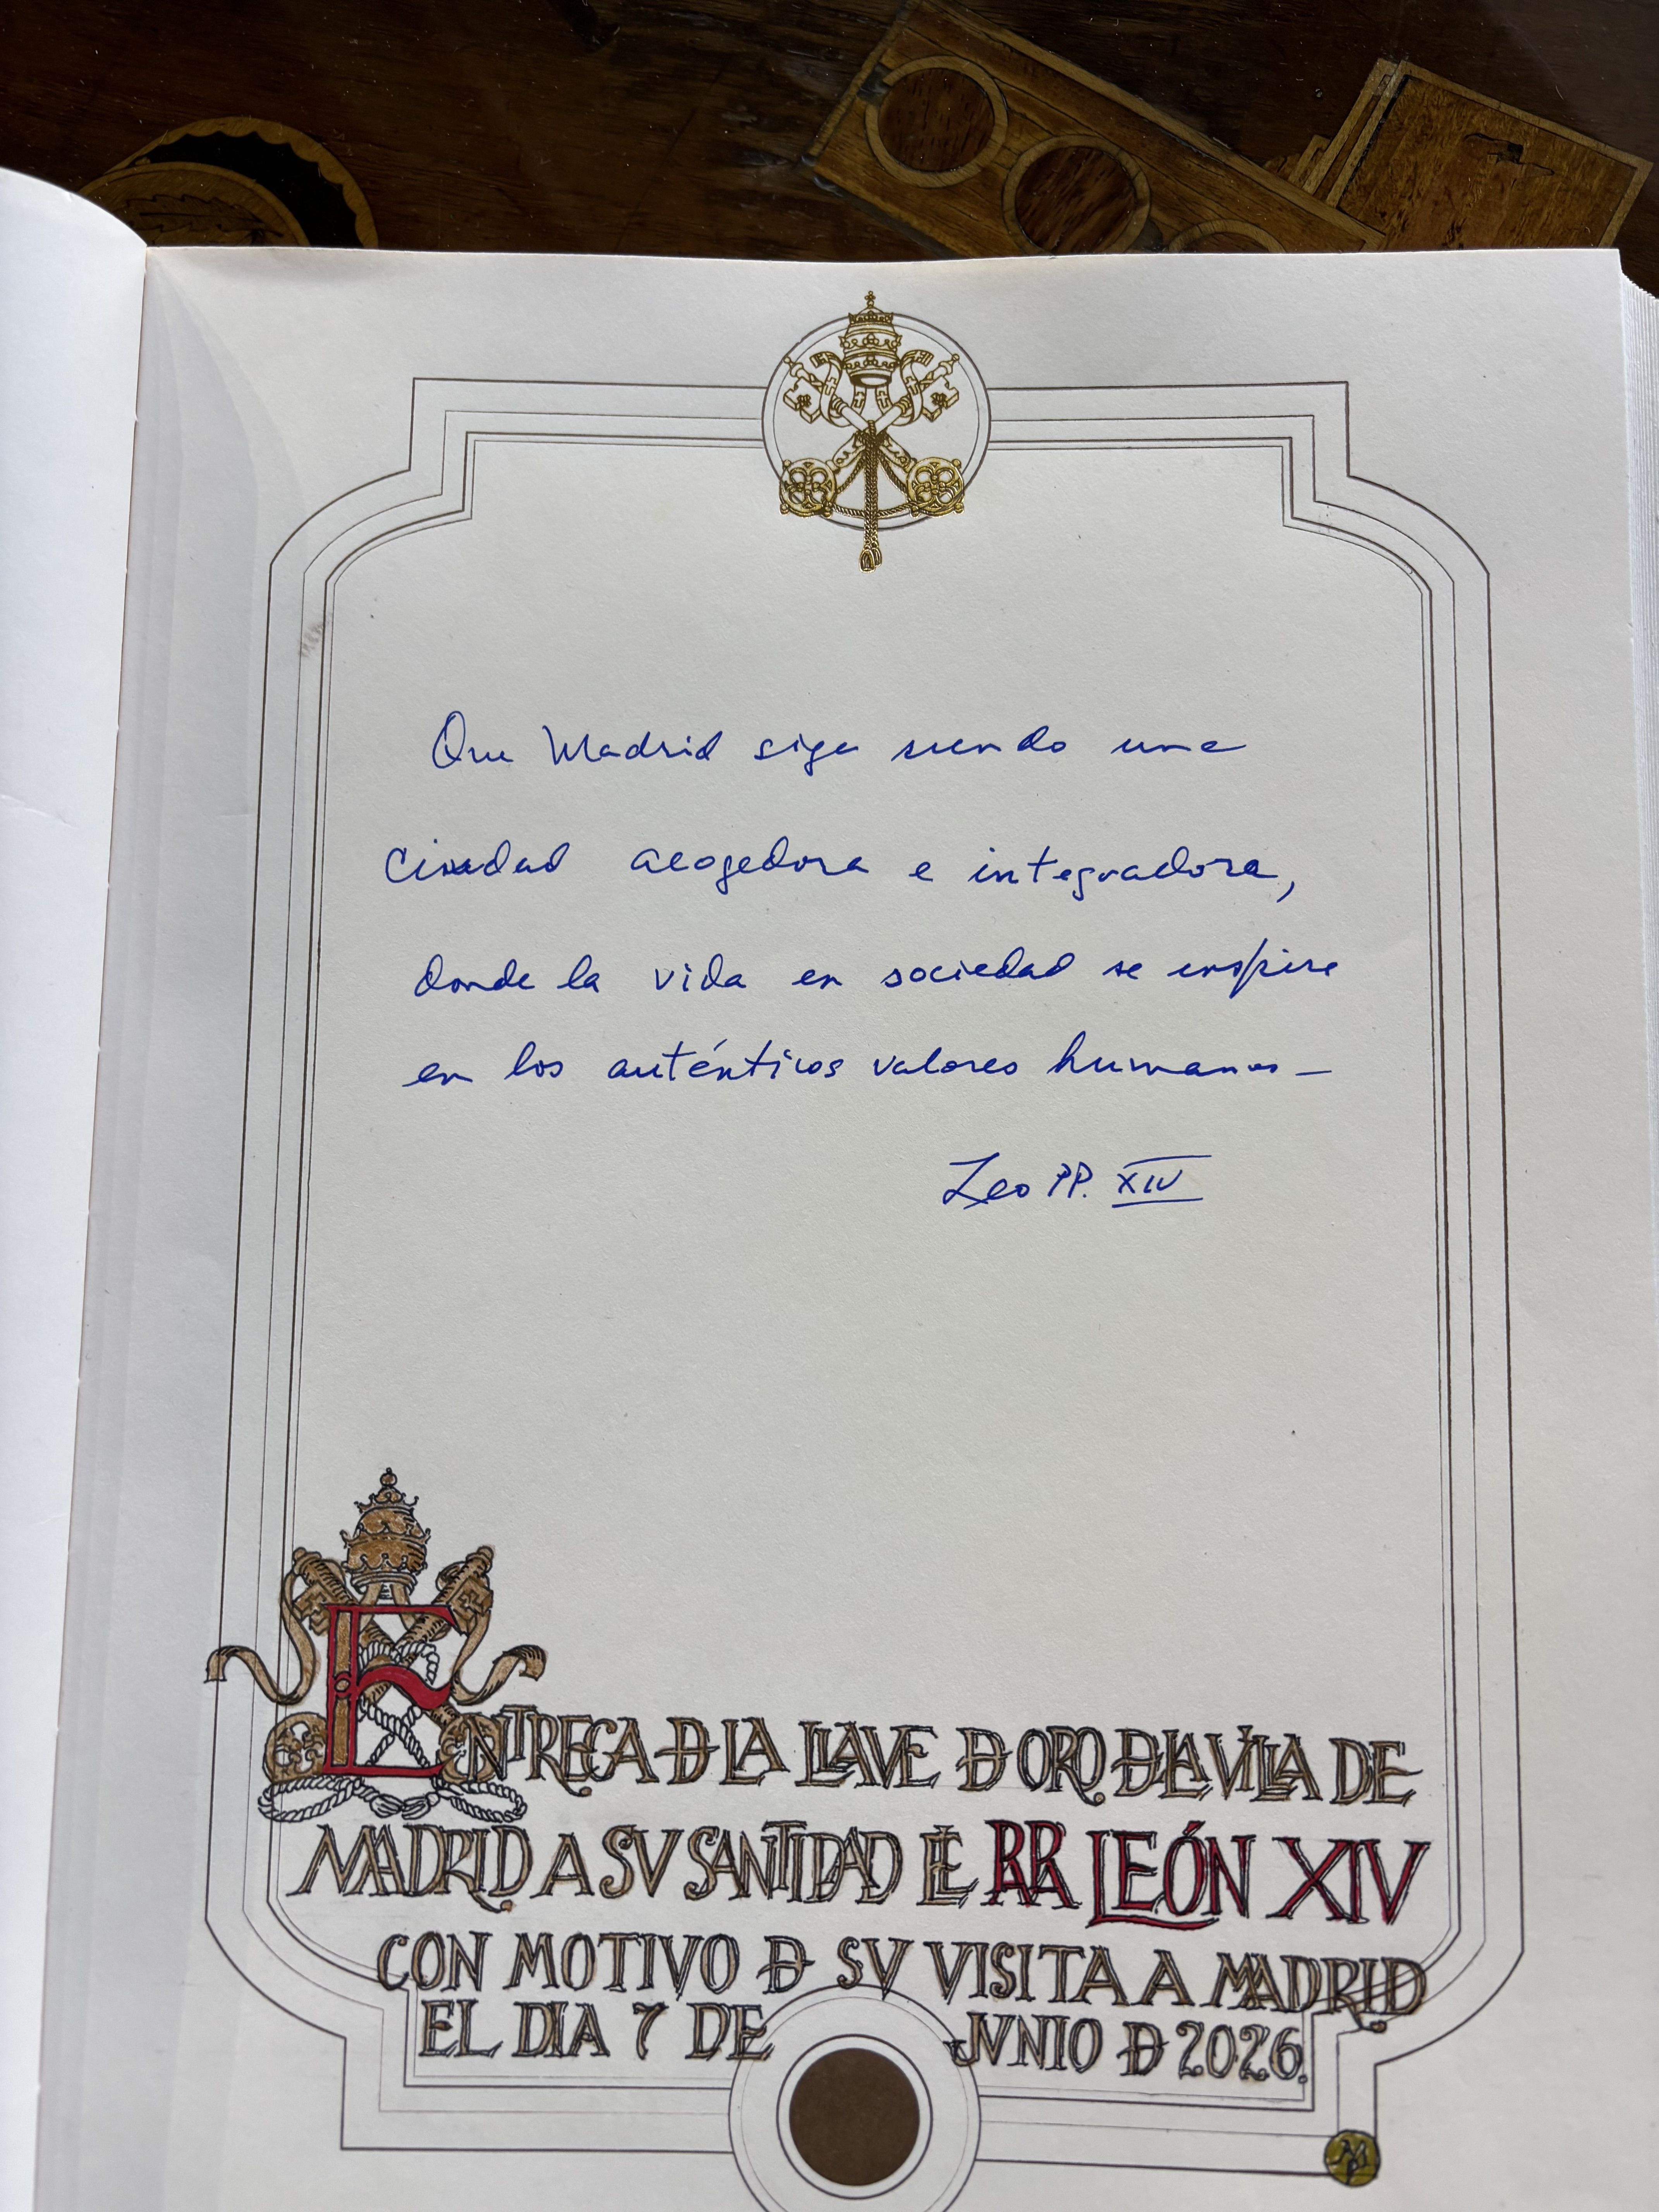 Que Madrid siga siendo una
ciudad acogedora e integradora,
donde la vida en sociedad se inspire
en los auténticos valores humanos –
Leo PP. XIV
ENTREGA DE LA LLAVE DE ORO DE LA VILLA DE
MADRID A SV SANTIDAD EL PAPA LEÓN XIV
CON MOTIVO DE SV VISITA A MADRID
EL DIA 7 DE JVNIO DE 2026.